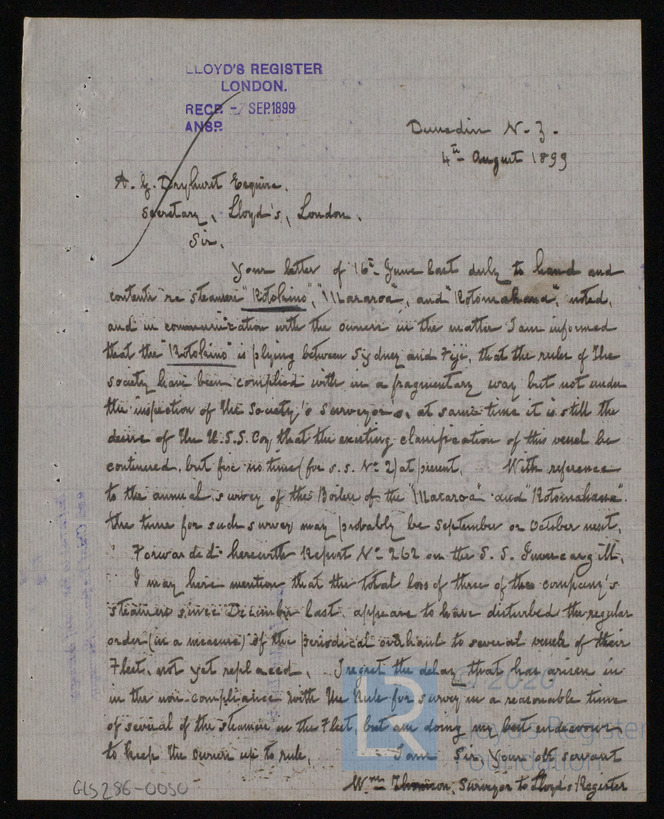 LLOYD'S REGISTER
LONDON.
RECD. -7 SEP. 1899
ANSD.
Dunedin N. Z.
4th August 1899
A. G. Dryhurst Esquire,
Secretary, Lloyd's, London.
Sir,
Your letter of 16th June last duly to hand and
contents re steamers "Rotokino", "Mararoa", and "Rotomahana", noted,
and in communication with the owners in the matter I am informed
that the "Rotokino" is plying between Sydney and Fiji, that the rules of The
Society have been complied with in a fragmentary way but not under
the inspection of the Society's Surveyors, at same time it is still the
desire of the U.S.S. Coy that the existing classification of this vessel be
continued, but fix no time (for s.s. No 2) at present. With reference
to the annual survey of the Boilers of the "Mararoa" and "Rotomahana".
the time for such survey may probably be September or October next,
Forwarded herewith Report No 262 on the S.S. Invercargill,
I may here mention that the total loss of three of the company's
steamers since December last, appears to have disturbed the regular
order (in a measure) of the periodical overhaul to several vessels of their
Fleet, not yet replaced. I regret the delay that has arisen in
in the non-compliance with the Rule for survey in a reasonable time
of several of the steamers in the Fleet, but am doing my best endeavour
to keep the owners up to rule, I am Sir Your obt servant
Wm Thomson, Surveyor to Lloyd's Register
GLS286-0050
LR
© 2020
Lloyd's Register
Foundation